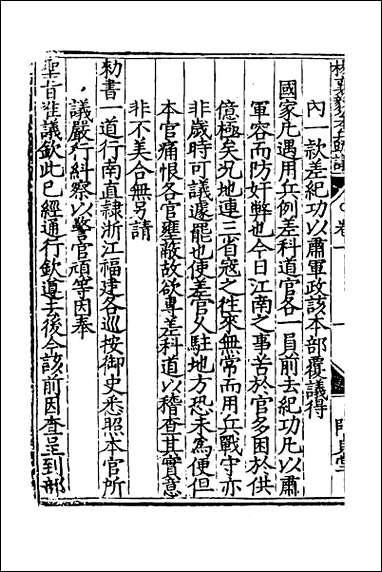 卷一
內一款差紀功以肅軍政該本部覆議得
國家凡遇用兵例差科道官各一員前去紀功凡以肅
軍容而防奸弊也今日江南之事苦於官多困於供
億極矣况地連三省寇之往來無常而用兵戰守亦
非歲時可議遽罷也使差官久駐地方恐未為便但
本官痛恨各官壅蔽故欲專差科道以稽查其實意
非不美合無另請
勑書一道行南直隸浙江福建各巡按御史悉照本官所
議嚴行糾察以警官頑等因奉
聖旨准議欽此已經通行欽遵去後今該前因查呈到部